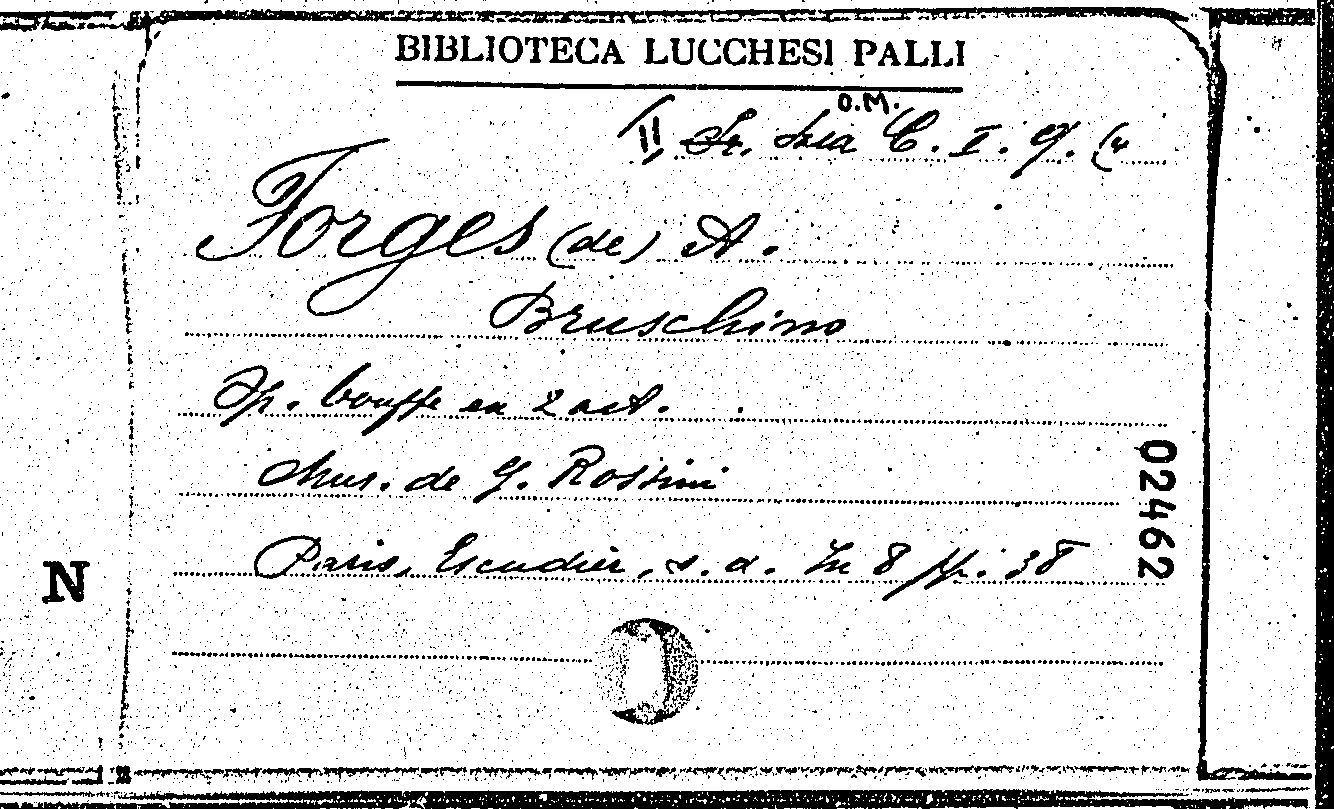 BIBLIOTECA LUCCHESI PALLI
O.M.
II, C. I. 9. (4
Forges (de) A.
Bruschino
Op. bouffe en 2 act.
Mus. de G. Rossini
Paris, Escudier, s. d. In 8 pp. 38
02462
N